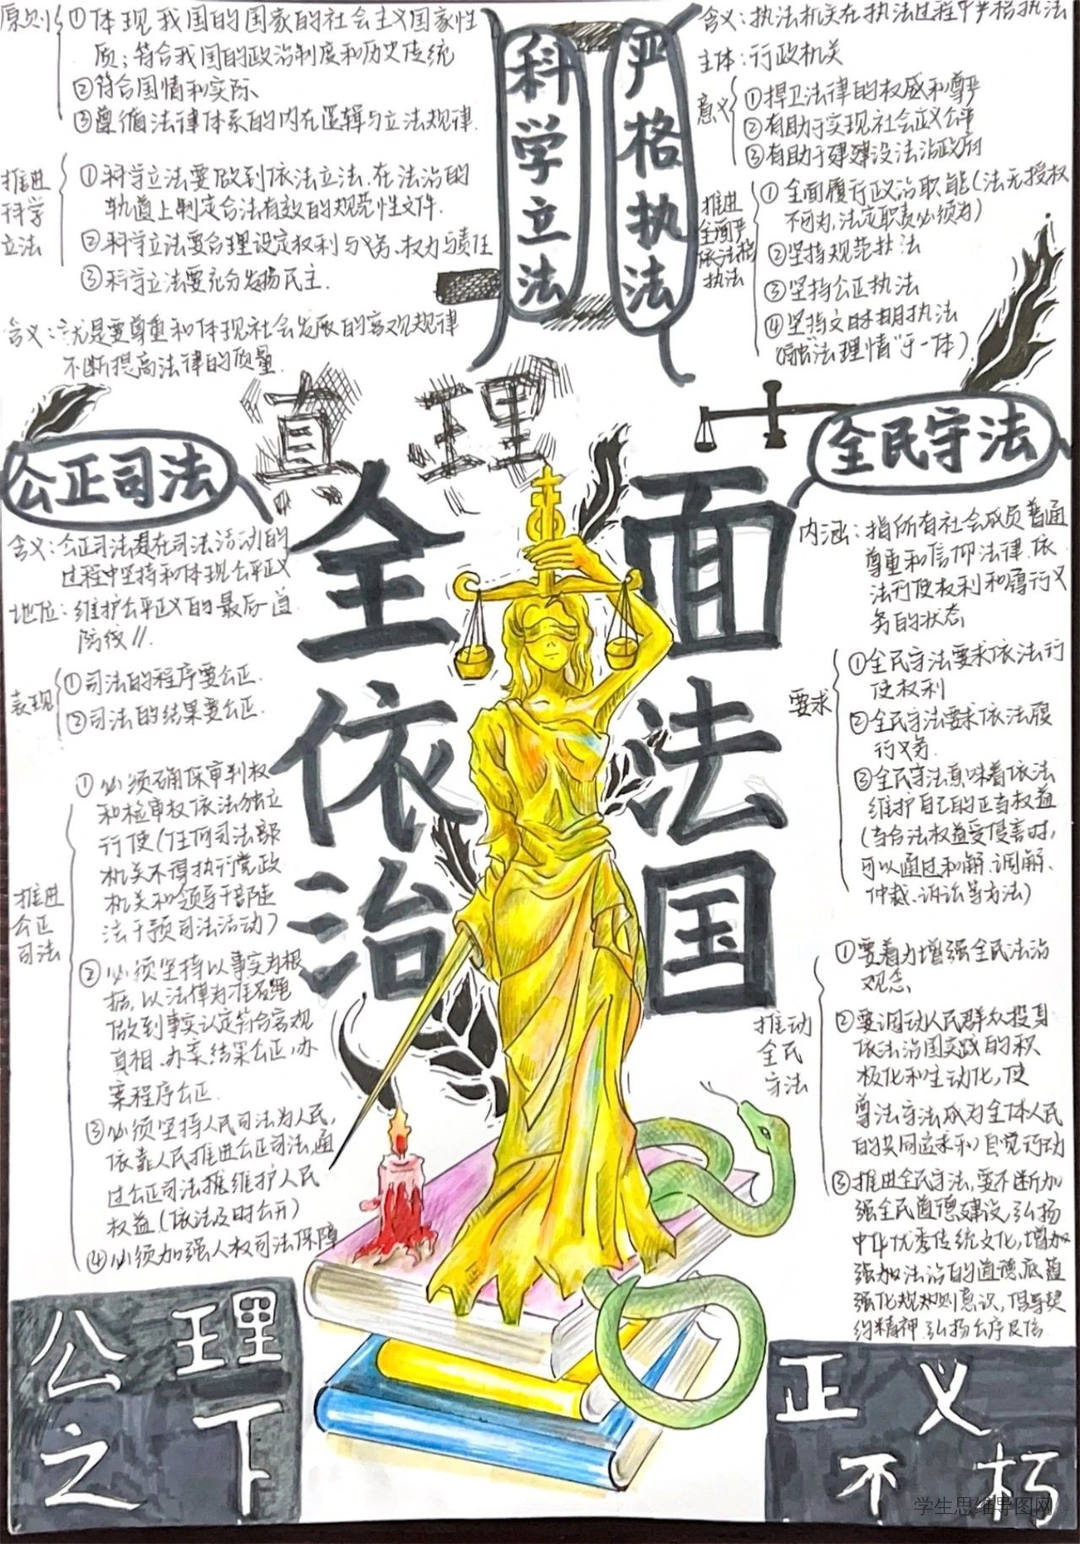 原则
①体现我国的国家的社会主义国家性
质;符合我国的政治制度和历史传统
②符合国情和实际
③遵循法律体系的内在逻辑与立法规律.
推进
科学
立法
①科学立法要做到依法立法.在法治的
轨道上制定合法有效的规范性文件.
②科学立法要合理设定权利与义务、权力与责任
③科学立法要充分发扬民主.
含义:就是要尊重和体现社会发展的客观规律
不断提高法律的质量.
科学立法
严格执法
含义:执法机关在执法过程中严格执法
主体:行政机关
意义
①捍卫法律的权威和尊严
②有助于实现社会正义公平
③有助于建设法治政府
推进
全面严
执法
①全面履行政治职能(法无授权
不可为,法定职责必须为)
②坚持规范执法
③坚持公正执法
④坚持文明执法
法理情于一体)
真理
公正司法
含义:公正司法是在司法活动的
过程中坚持和体现公平正义
地位:维护公平正义的最后一道
防线//.
表现
①司法的程序要公正.
②司法的结果要公正.
推进
公正
司法
①必须确保审判权
和检审权依法独立
行使(任何司法部
机关不得执行党政
机关和领导干部违
法干预司法活动)
②必须坚持以事实为根
据,以法律为准绳
做到事实认定符合客观
真相.办案结果公正,办
案程序公正.
③必须坚持人民司法为人民,
依靠人民推进公正司法,通
过公正司法维护人民
权益(依法及时公开)
④必须加强人权司法保障
全面依法治国
全民守法
内涵:指所有社会成员普遍
尊重和信仰法律.依
法行使权利和履行义
务的状态
要求
①全民守法要求依法行
使权利
②全民守法要求依法履
行义务.
③全民守法意味着依法
维护自己的正当权益
(当合法权益受侵害时,
可以通过和解、调解、
仲裁、诉讼等方法)
推动
全民
守法
①要着力增强全民法治
观念
②要调动人民群众投身
依法治国实践的积
极化和生动化,使
尊法守法成为全体人民
的共同追求和自觉行动
③推进全民守法,要不断加
强全民道德建设,弘扬
中华优秀传统文化,增加
强加法治的道德底蕴
强化规则意识,倡导契
约精神.弘扬公序良俗.
公理
之下
正义
不朽
学生思维导图网